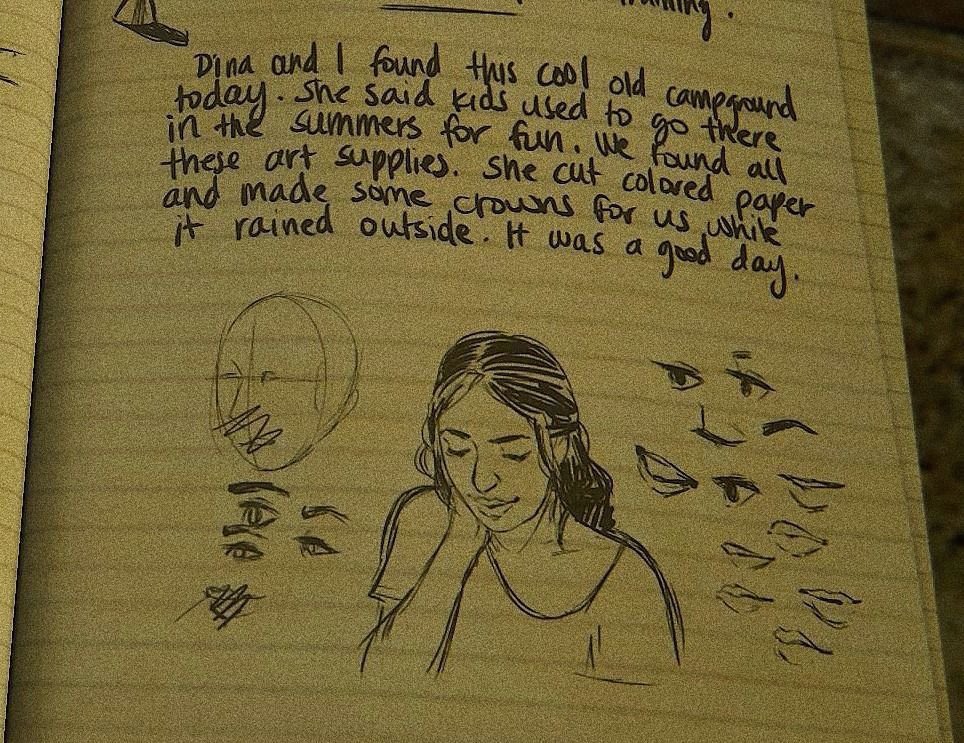 Dina and I found this cool old campground
today. She said kids used to go there
in the summers for fun. We found all
these art supplies. She cut colored paper
and made some crowns for us while
it rained outside. It was a good day.